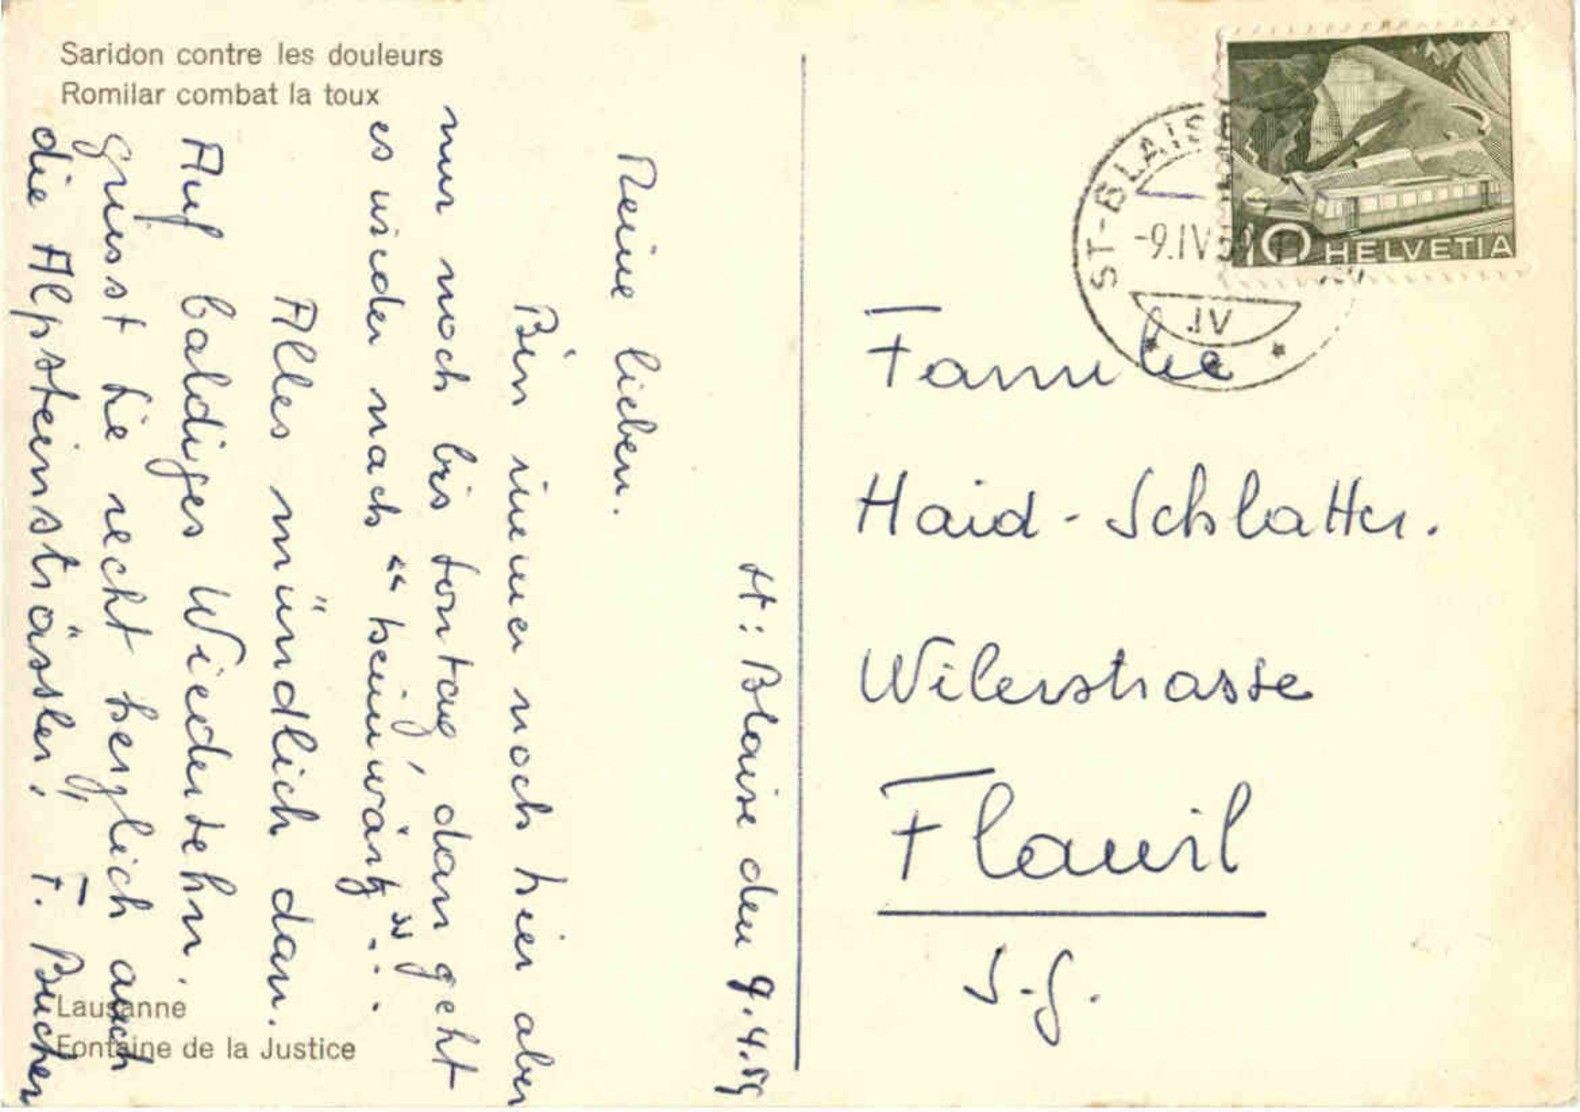 Saridon contre les douleurs
Romilar combat la toux
St: Blaise den 9.4.59
Meine lieben.
Bin immer noch hier aber
nur noch bis Sontag, dan geht
es wieder nach “heimwärtz”...
Alles mündlich dan.
Auf baldiges Wiedersehn.
grüsst Sie recht herzlich auch
die Alpsteinsträssler! F. Bucher
Lausanne
Fontaine de la Justice
ST-BLAISE
-9.IV.59
IV
10 HELVETIA
Familie
Haid-Schlatter.
Wilerstrasse
Flawil
S.G.